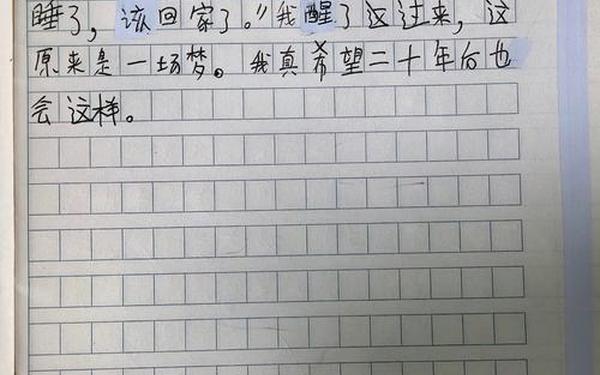 睡了，该回家了。”我醒了过来，这
原来是一场梦。我真希望二十年后也
会这样。